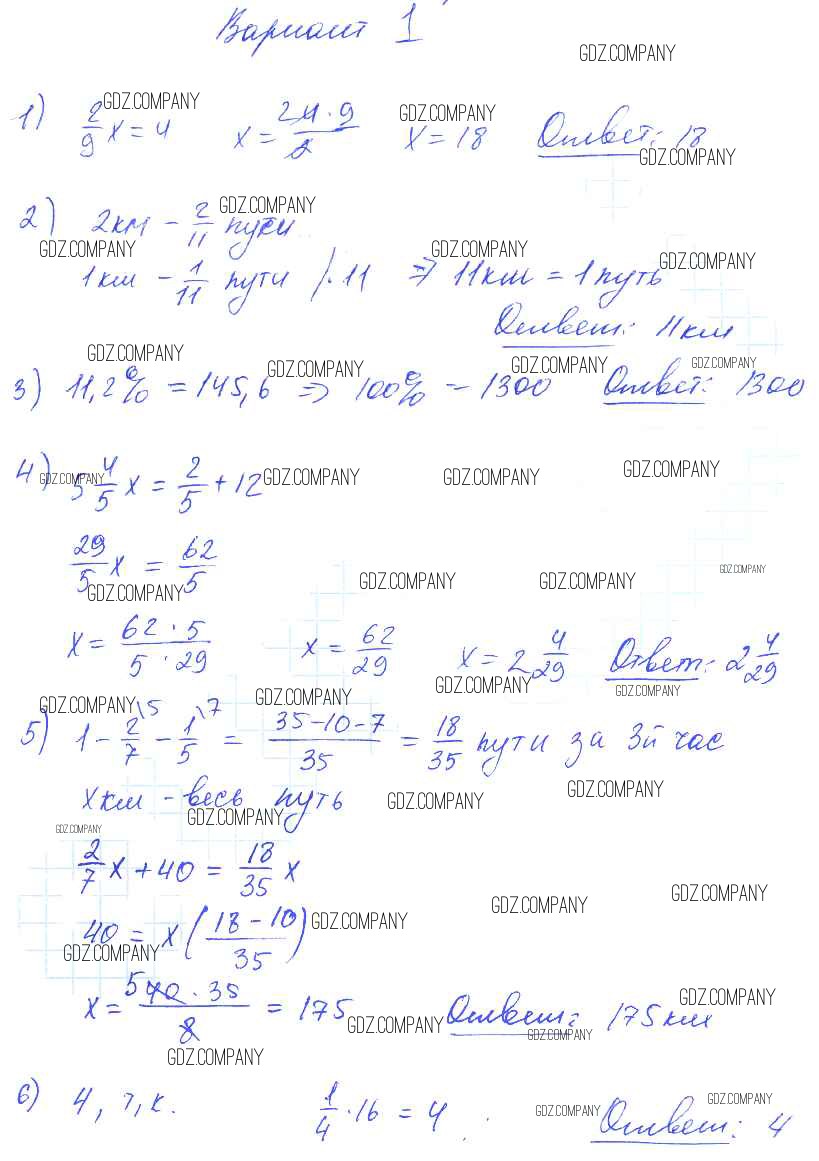 Вариант 1
GDZ.COMPANY
1) 2/9 x = 4 x = 24·9/2 x = 18 Ответ: 18
GDZ.COMPANY GDZ.COMPANY GDZ.COMPANY
2) 2км – 2/11 пути
GDZ.COMPANY
GDZ.COMPANY GDZ.COMPANY GDZ.COMPANY
1км – 1/11 пути /·11 ⇒ 11км = 1путь
Ответ: 11км
GDZ.COMPANY GDZ.COMPANY GDZ.COMPANY GDZ.COMPANY
3) 11,2% = 145,6 ⇒ 100% – 1300 Ответ: 1300
4) 5 4/5 x = 2/5 + 12
GDZ.COMPANY GDZ.COMPANY GDZ.COMPANY GDZ.COMPANY
29/5 x = 62/5
GDZ.COMPANY GDZ.COMPANY GDZ.COMPANY GDZ.COMPANY
x = 62·5/5·29 x = 62/29 x = 2 4/29 Ответ: 2 4/29
GDZ.COMPANY GDZ.COMPANY GDZ.COMPANY GDZ.COMPANY
5) 1 – 2/7 \5 – 1/5 \7 = 35–10–7/35 = 18/35 пути за 3й час
xкм – весь путь
GDZ.COMPANY GDZ.COMPANY GDZ.COMPANY
GDZ.COMPANY
2/7 x + 40 = 18/35 x
GDZ.COMPANY GDZ.COMPANY
40 = x(18–10/35)
GDZ.COMPANY GDZ.COMPANY
x = 5 40·35/8 = 175 Ответ: 175км
GDZ.COMPANY GDZ.COMPANY GDZ.COMPANY
GDZ.COMPANY
6) 4, т,к. 1/4 · 16 = 4. Ответ: 4
GDZ.COMPANY GDZ.COMPANY